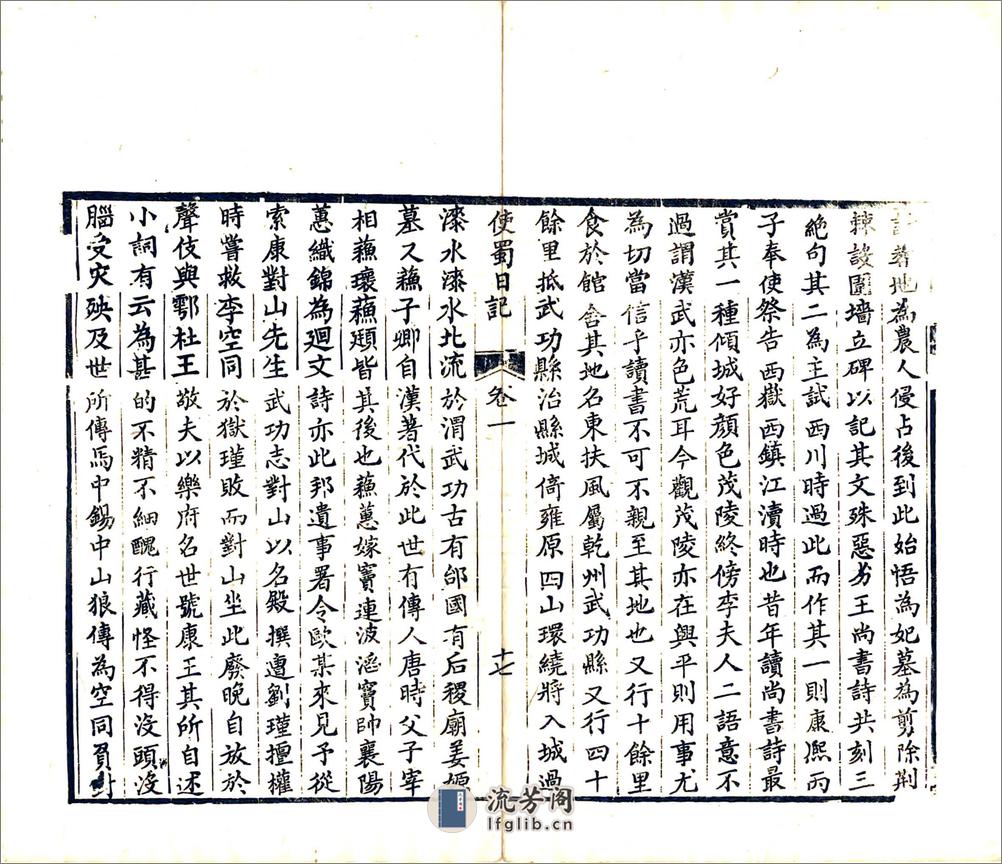 着地為農人侵占後到此始悟為妃墓為剪除荆
棘設圍墻立碑以記其文殊惡劣王尚書詩共刻三
絶句其二為主試西川時過此而作其一則康熙丙
子奉使祭告西嶽西鎮江瀆時也昔年讀尚書詩最
賞其一種傾城好顔色茂陵終傍李夫人二語意不
過謂漢武亦色荒耳今觀茂陵亦在興平則用事尤
為切當信乎讀書不可不親至其地也又行十餘里
食於館舍其地名東扶風屬乾州武功縣又行四十
餘里抵武功縣治縣城倚雍原四山環繞將入城過
使蜀日記 卷一 十七
漆水漆水北流於渭武功古有邰國有后稷廟姜嫄
墓又蘓子卿自漢著代於此世有傳人唐時父子宰
相蘓瓌蘓頲皆其後也蘓蕙嫁竇連波滔竇帥襄陽
蕙織錦為迴文詩亦此邦遺事署令歐某來見予從
索康對山先生武功志對山以名殿撰遭劉瑾擅權
時嘗救李空同於獄瑾敗而對山坐此廢晚自放於
聲伎與鄠杜王敬夫以樂府名世號康王其所自述
小詞有云為甚的不精不細醜行藏怪不得没頭没
腦受灾殃及世所傳馬中錫中山狼傳為空同負對
流芳阁
lfglib.cn